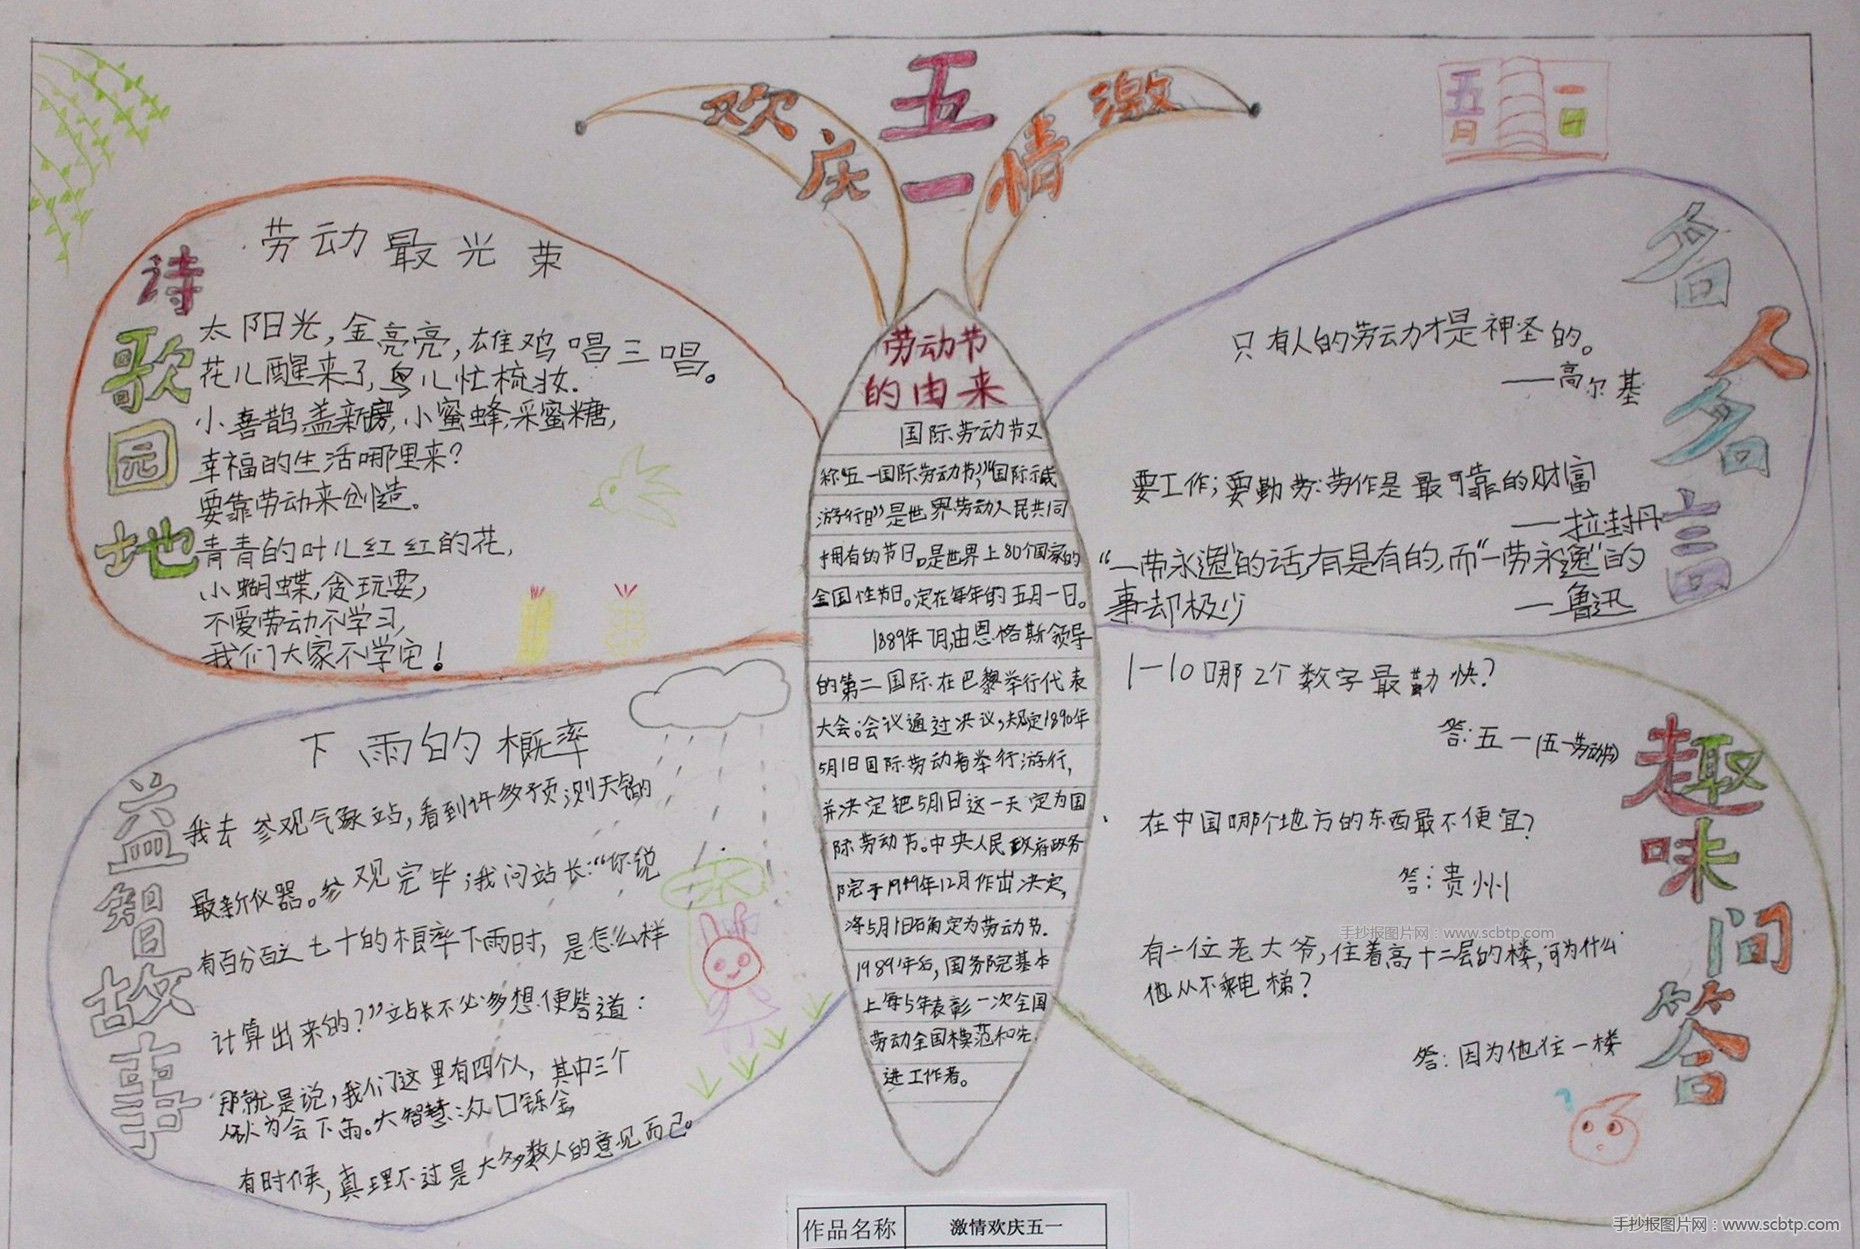 欢庆
五一
激情
五月
一日
诗歌园地
劳动最光荣
太阳光,金亮亮,雄鸡唱三唱。
花儿醒来了,鸟儿忙梳妆.
小喜鹊,盖新房,小蜜蜂,采蜜糖,
幸福的生活哪里来?
要靠劳动来创造。
青青的叶儿红红的花,
小蝴蝶,贪玩耍,
不爱劳动不学习,
我们大家不学它!
益智故事
下雨的概率
我去参观气象站,看到许多预测天气的
最新仪器。参观完毕,我问站长:“你说
有百分之七十的概率下雨时,是怎么样
计算出来的?”站长不必多想便答道:
那就是说,我们这里有四个人,其中三个
认为会下雨。大智慧:众口铄金
有时候,真理不过是大多数人的意见而已。
劳动节
的由来
国际劳动节又
称“五一国际劳动节”,“国际示威
游行日”是世界劳动人民共同
拥有的节日。是世界上80个国家的
全国性节日。定在每年的五月一日。
1889年7月,由恩格斯领导
的第二国际在巴黎举行代表
大会。会议通过决议,规定1890年
5月1日国际劳动者举行游行,
并决定把5月1日这一天定为国
际劳动节。中央人民政府政务
院于1949年12月作出决定,
将5月1日确定为劳动节.
1989年后,国务院基本
上每5年表彰一次全国
劳动全国模范和先
进工作者。
名人名言
只有人的劳动才是神圣的。
——高尔基
要工作;要勤劳:劳作是最可靠的财富
——拉封丹
“一劳永逸”的话,有是有的,而“一劳永逸”的
事却极少
——鲁迅
趣味问答
1—10哪2个数字最勤快?
答:五一(五一劳动节)
在中国哪个地方的东西最不便宜?
答:贵州
有一位老大爷,住着高十二层的楼,可为什么
他从不乘电梯?
答:因为他住一楼
手抄报图片网:www.scbtp.com
作品名称 激情欢庆五一
手抄报图片网:www.scbtp.com